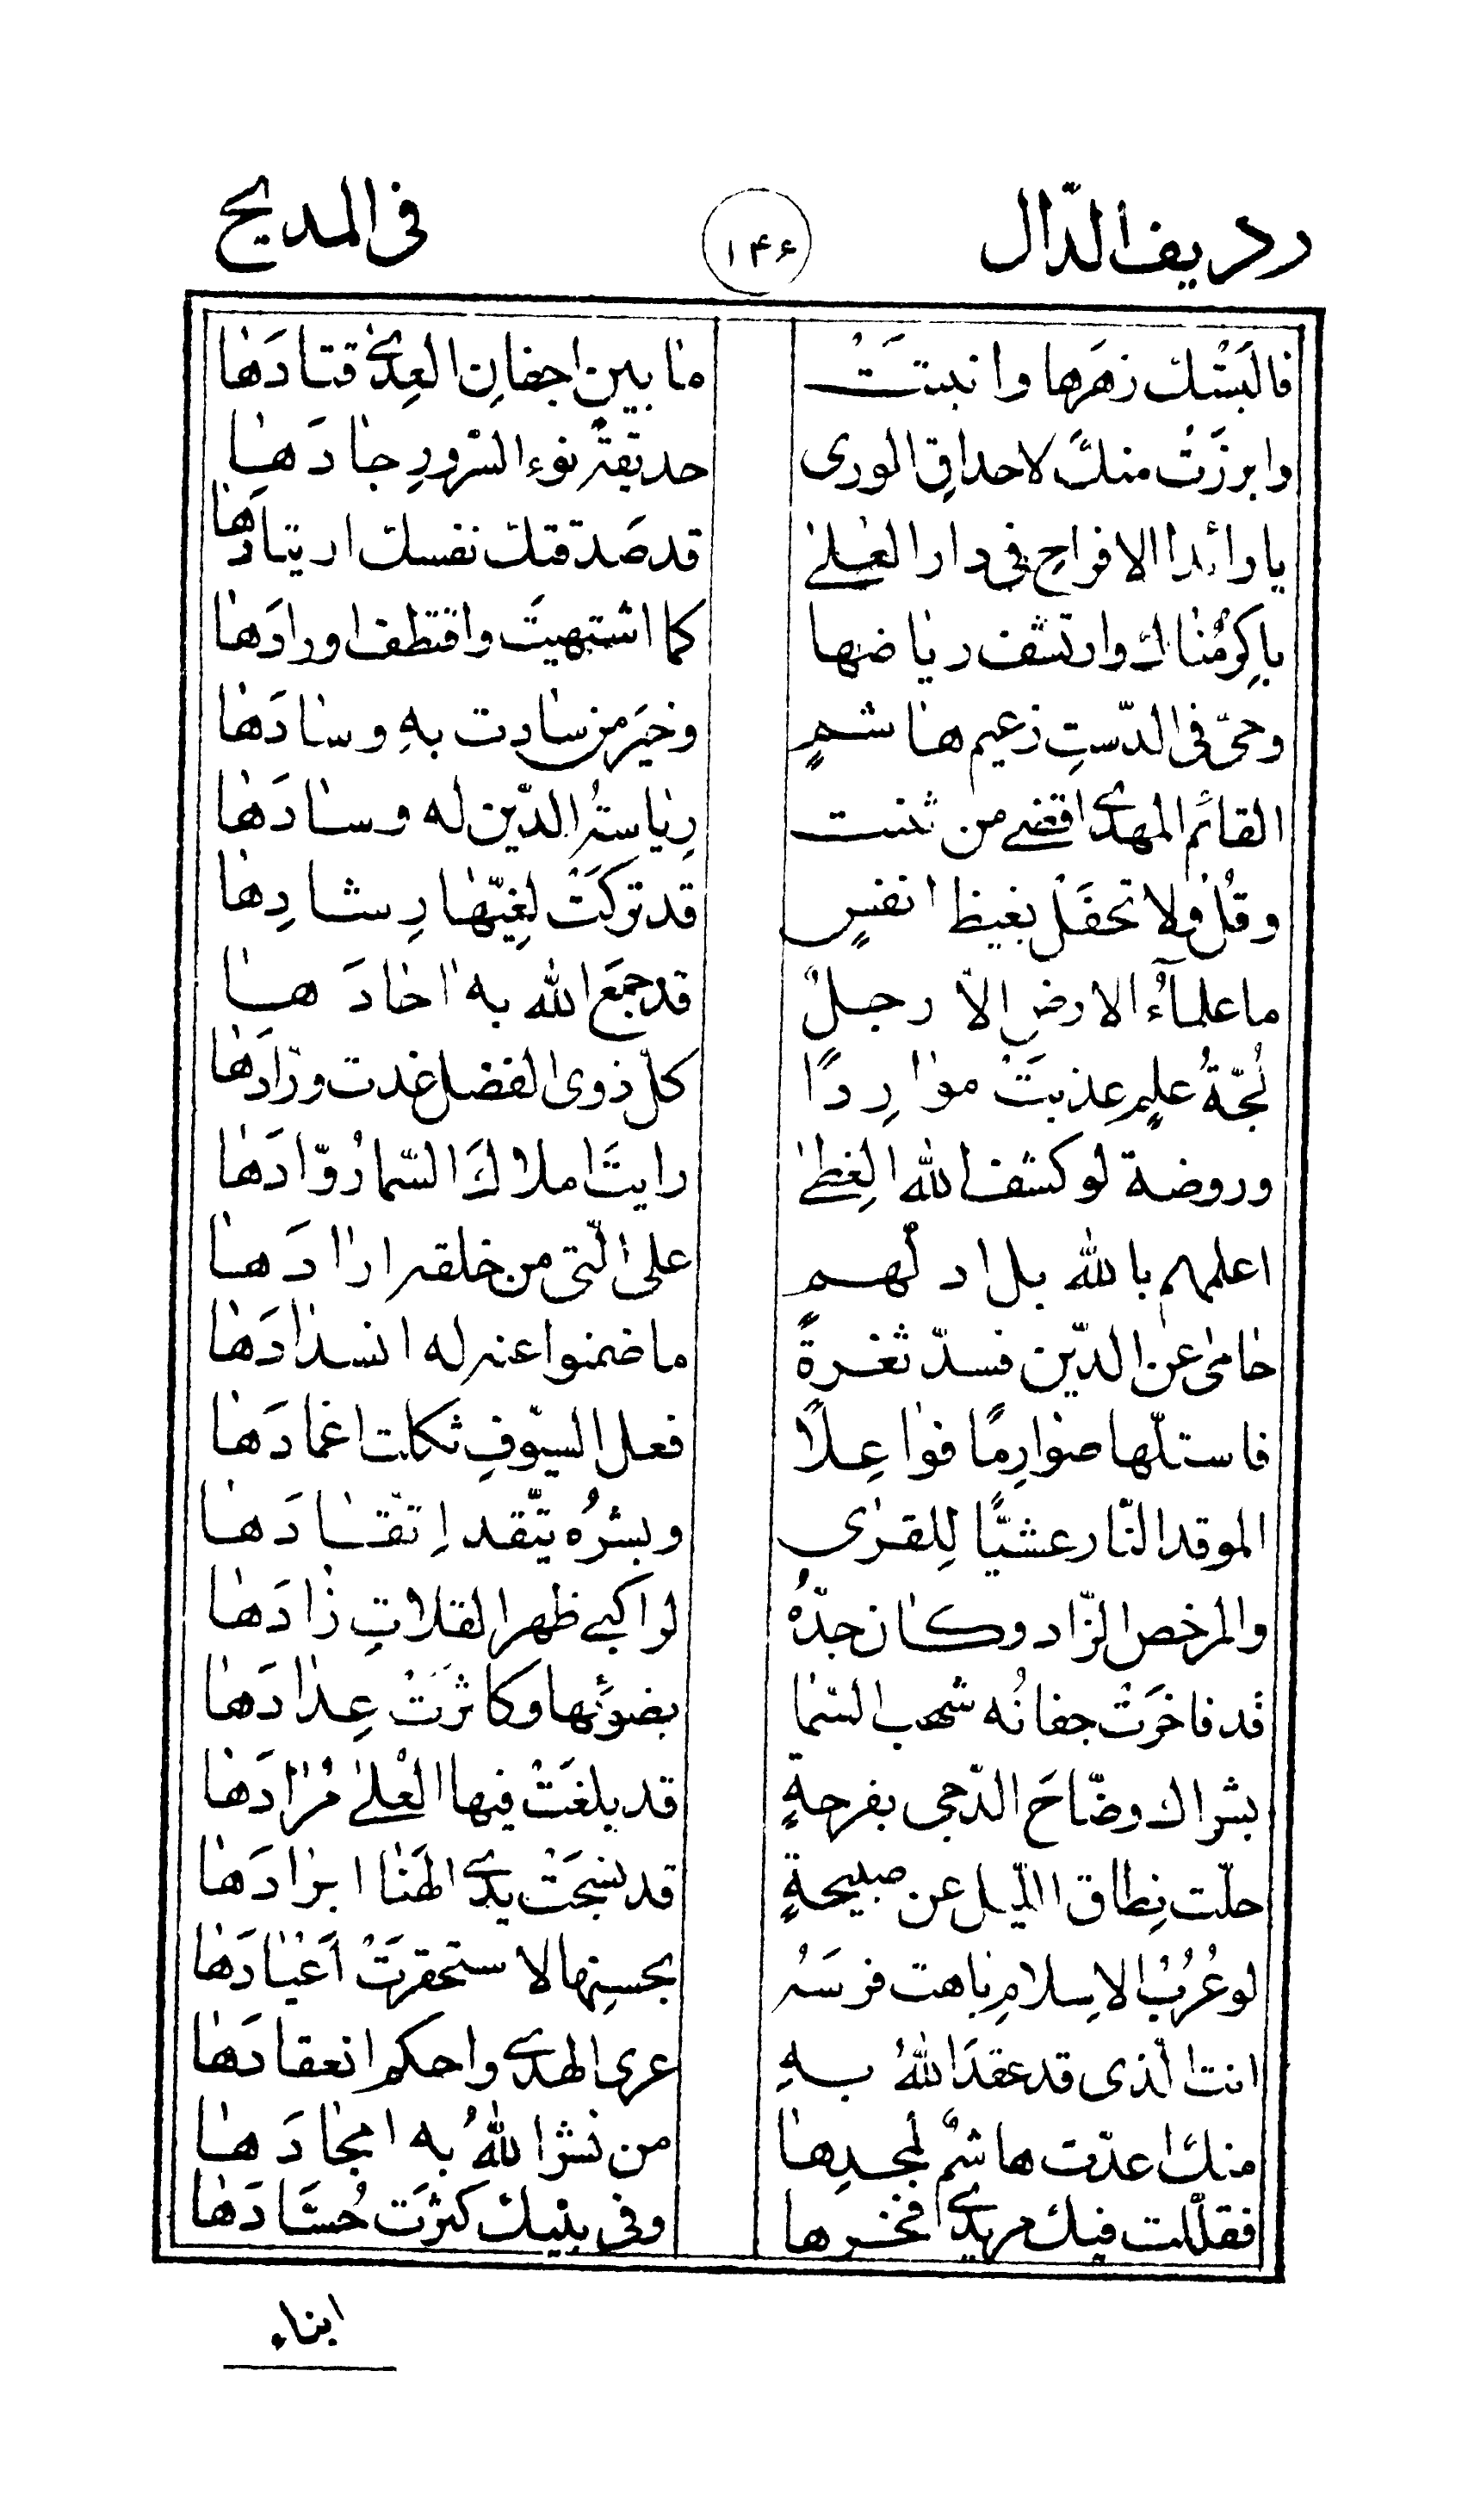 رديف الدّال ١٤٦ فى المديح
فالبَسَتْك زهرَها وانبتَتْ ما بين اجفانِ العِدى قتادَها
وابرزَتْ منك لاحداقِ الورى حديقةً نوء السّرورِ جادَها
يا رائدا الافراحِ فى دار العُلىٰ قد صَدقتك نفسك ارتيادَها
باكِر مُناك وارتشف رياضها كما اشتهيتَ واقتطف اورادَها
وحىّ فى الدّستِ زعيم هاشمٍ وخيرَ من سادت به وسادَها
القائم المهدىّ اقضى من ثنت رياسةُ الدّين له وسادَها
وقُل ولا تحفَل بغيظ انفسٍ قد تركتْ لِغيّها رِشادِها
ما علمآءُ الارضِ الّا رجلٌ قد جمعَ الله به اٰحادَها
لُجّةُ علمٍ عذبَتْ مواردًا كلّ ذوى الفضل غدت ورّادَها
وروضة لو كشف الله الغِطىٰ رايتَ املاكَ السّما رُوّادَها
اعلمهم بالله بل ادلّهم على الّتى من خلقه ارادَها
حامىٰ عن الدّين فسدّ ثغرةً ما ضمنوا عنه له انسدادَها
فاستلّها صوارِمًا فواعِلًا فعل السيّوفِ ثكلت اغمادَها
الموقد النّار عشيًّا للقرٰى وبشرُه يتّقد اِتّقادَها
والمرخص الزّاد وكان جدّهُ لراكبى ظهر الفلاتِ زادَها
قد فاخرَتْ جفانُه شهب السّما بضوئها وكاثرَتْ عِدادَها
بشراك وضّاحَ الدّجى بفرحةٍ قد بلغَتْ فيها العُلىٰ مُرادَها
حلّت نِطاق اللّيل عن صبيحةٍ قد نسجَتْ يدُ الهَنا ابرادَها
لو عُرُبُ الاسلامِ باهت فرسَهُ بحسنِها لاستحقرَتْ أعيادَها
انت الّذى قد عقدَ اللهُ بهِ عرى الهدى واحكم انعقادَها
منك اعدّت هاشمٌ لمجدِها من نشرَ اللهُ به امجادَها
فقلّلت فيك مريدى فخرها وفى بنيك كثرَت حُسّادَها
ابناء